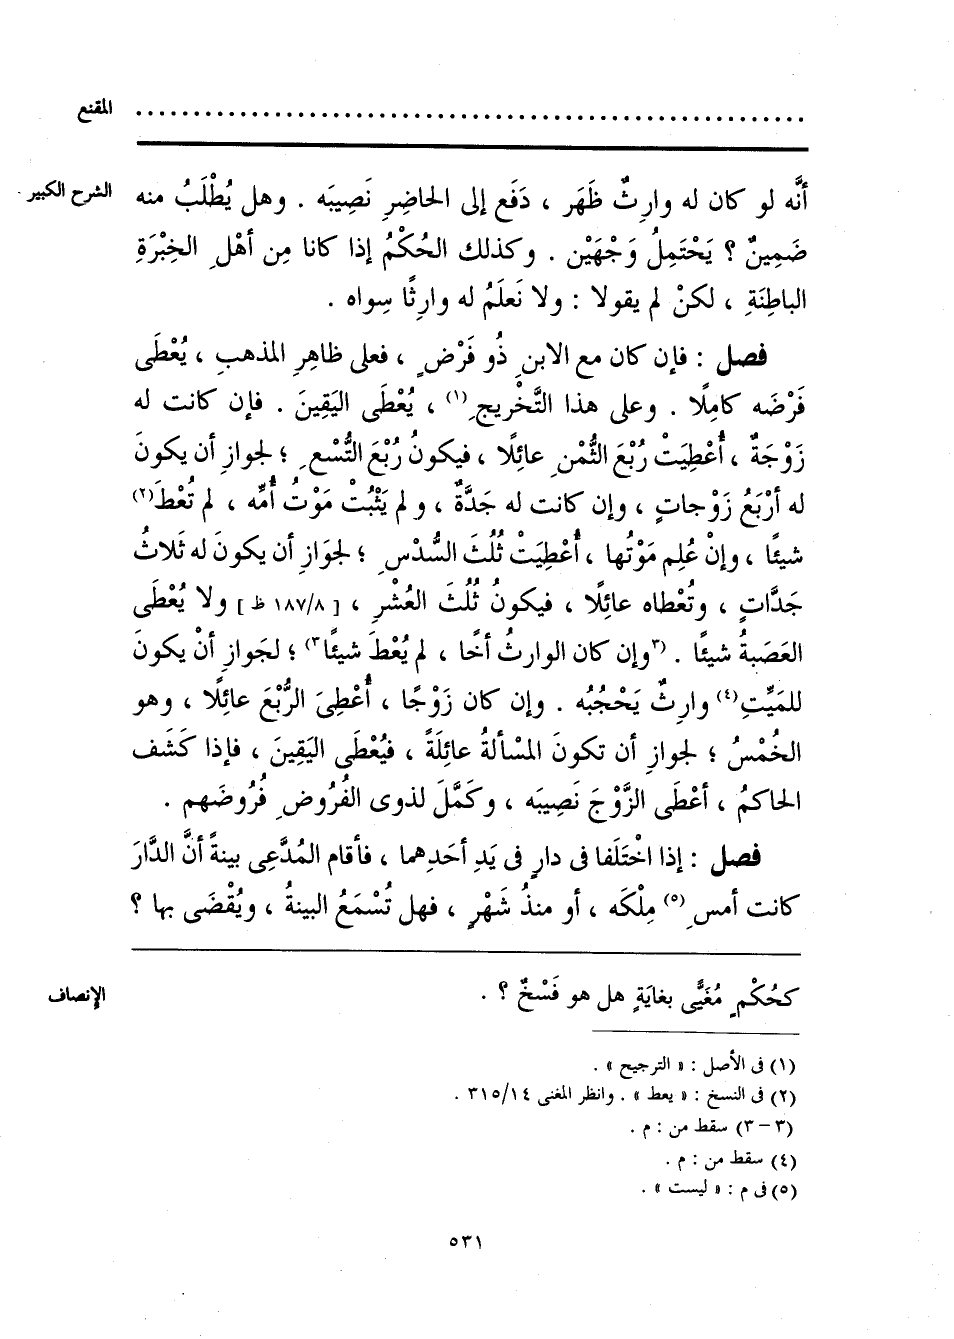 المقنع ........................................................
الشرح الكبير
أنَّه لو كان له وارِثٌ ظَهَر ، دَفَع إلى الحاضِرِ نَصِيبَه . وهل يُطْلَبُ منه
ضَمِينٌ ؟ يَحْتَمِلُ وَجْهَيْن . وكذلك الحُكْمُ إذا كانا مِن أهْلِ الخِبْرَةِ
الباطِنَةِ ، لكنْ لم يقولا : ولا نَعلَمُ له وارِثًا سِواه .
فصل : فإن كان مع الابنِ ذُو فَرْضٍ ، فعلى ظاهِرِ المذهبِ ، يُعْطَى
فَرْضَه كامِلًا . وعلى هذا التَّخْريجِ(١) ، يُعْطَى اليَقِينَ . فإن كانت له
زَوْجَةٌ ، أُعْطِيَتْ رُبْعَ الثُّمْنِ عائِلًا ، فيكونُ رُبْعَ التُّسْعِ ؛ لجوازِ أن يكونَ
له أرْبَعُ زَوْجاتٍ ، وإن كانت له جَدَّةٌ ، و لم يَثْبُتْ مَوْتُ أُمِّه ، لم تُعْطَ(٢)
شيئًا ، وإنْ عُلِم مَوْتُها ، أُعْطِيَتْ ثُلُثَ السُّدْسِ ؛ لجوَازِ أن يكونَ له ثَلاثُ
جَدَّاتٍ ، وتُعْطاه عائِلًا ، فيكونُ ثُلُثَ العُشْرِ ، [ ١٨٧/٨ ظ ] ولا يُعْطَى
العَصَبةُ شيئًا . (٣وإن كان الوارثُ أخًا ، لم يُعْطَ شيئًا٣) ؛ لجَوازِ أنْ يكونَ
للمَيِّتِ(٤) وارِثٌ يَحْجُبُه . وإن كان زَوْجًا ، أُعْطِىَ الرُّبْعَ عائِلًا ، وهو
الخُمْسُ ؛ لجوازِ أن تكونَ المسْألةُ عائِلَةً ، فيُعْطَى اليَقِينَ ، فإذا كَشَف
الحاكمُ ، أعْطَى الزَّوْجَ نَصِيبَه ، وكَمَّلَ لذوى الفُرُوضِ فُرُوضَهم .
فصل : إذا اخْتَلَفا فى دارٍ فى يَدِ أحَدِهما ، فأقام المُدَّعِى بينةً أنَّ الدَّارَ
كانت أمسِ(٥) مِلْكَه ، أو منذُ شَهْرٍ ، فهل تُسْمَعُ البينةُ ، ويُقْضَى بها ؟
الإنصاف
كحُكْمٍ مُغَيًّى بغايَةٍ هل هو فَسْخٌ ؟ .
(١) فى الأصل : « الترجيح » .
(٢) فى النسخ : « يعط » . وانظر المغنى ٣١٥/١٤ .
(٣ – ٣) سقط من : م .
(٤) سقط من : م .
(٥) فى م : « ليست » .
٥٣١